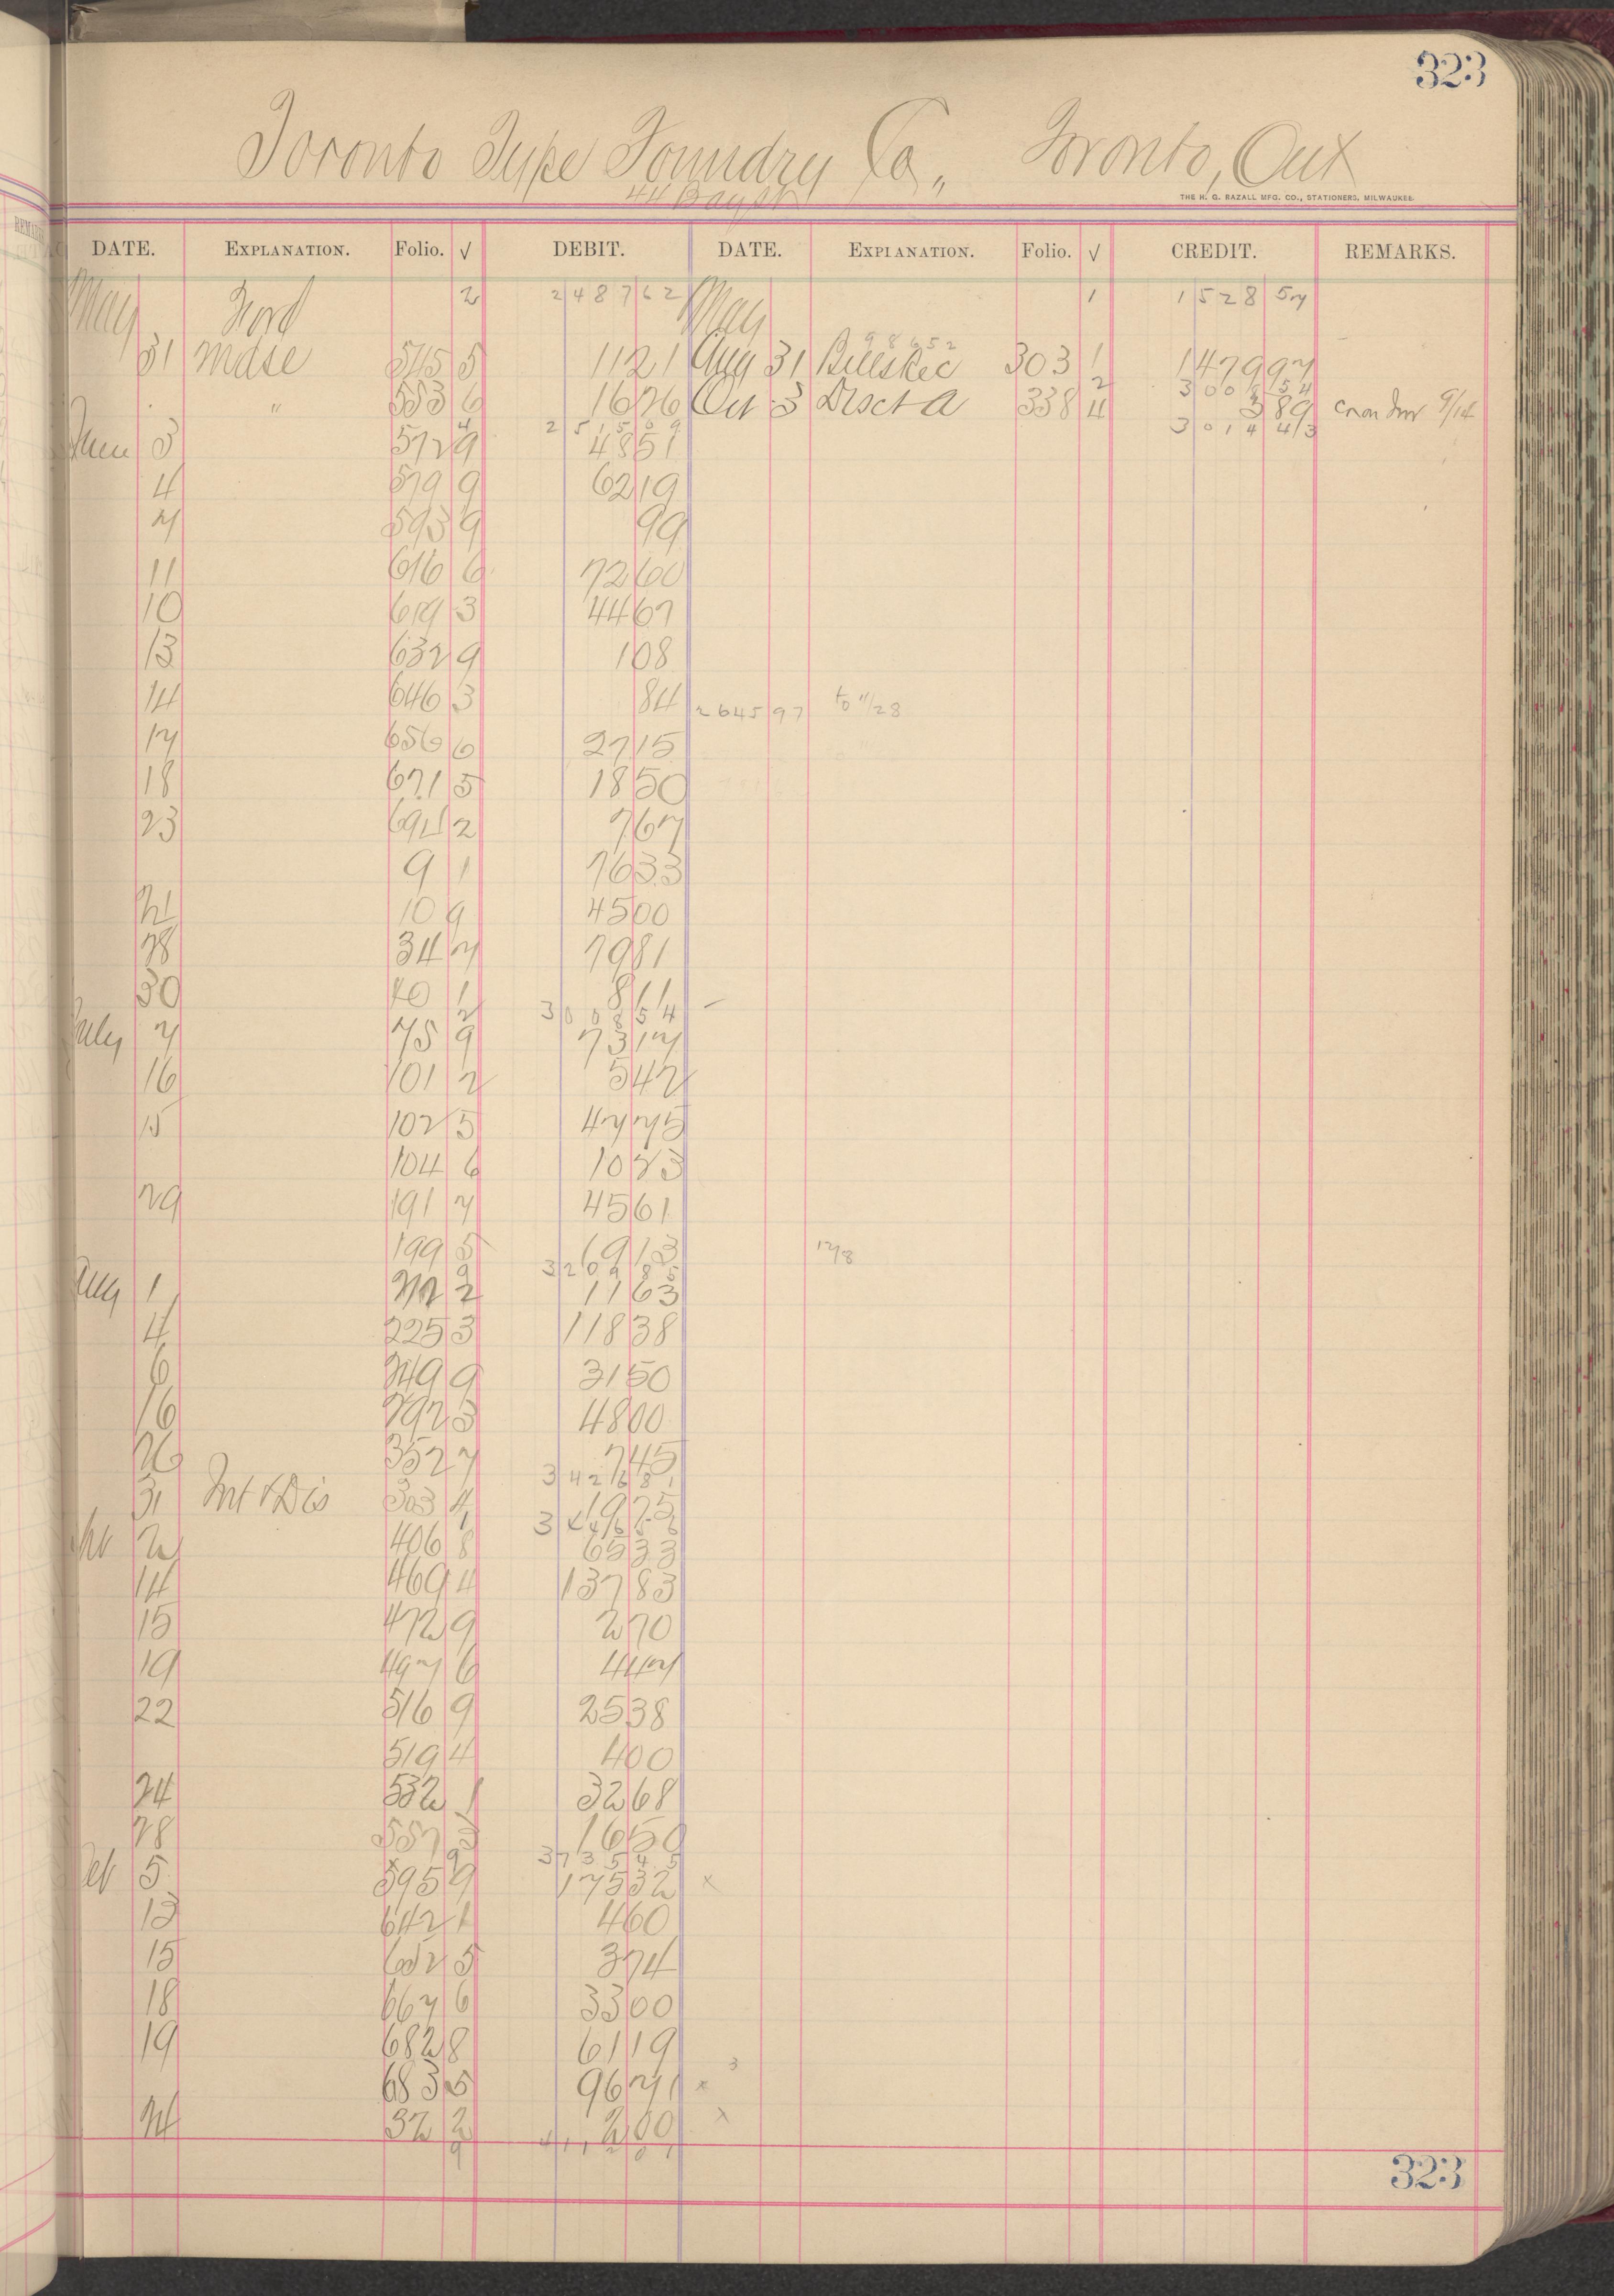 323
Toronto Type Foundry Co., Toronto, Ont
44 Bay St
THE H. G. RAZALL MFG. CO., STATIONERS, MILWAUKEE.
DATE. EXPLANATION. Folio. √ DEBIT. DATE. EXPLANATION. Folio. √ CREDIT. REMARKS.
May Ford 2 2487 62 May 1 1528 57
9 8 6 5 2
31 Mdse 545 5 11 21 Aug 31 Bills Rec 303 1 1479 97
2 3008 54
" 553 6 16 26 Oct 3 Disct a 338 4 3 89 9/14
4 2515 09 3014 43
June 3 572 9 48 51
4 579 9 62 19
7 593 9 99
11 616 6 72 60
10 619 3 44 67
13 632 9 1 08
14 646 3 84 2645 97 to 11/28
17 656 6 27 15
18 671 5 18 50
23 694 2 7 67
9 1 76 33
24 10 9 45 00
28 34 7 79 81
30 40 1 8 61
2 3008 54 –
July 7 75 9 73 17
16 101 2 5 42
15 102 5 47 75
104 6 10 23
29 191 7 45 61
199 5 69 13 12/8
9 3209 85
Aug 1 212 2 11 63
4 225 3 118 38
6 249 9 31 50
16 292 3 48 00
26 352 7 7 45
3426 81
31 Int & Dis 303 4 19 25
1 3446 06
2 406 8 65 33
14 469 4 137 83
15 472 9 2 70
19 497 6 4 47
22 516 9 25 38
519 4 4 00
24 532 1 32 68
28 557 3 16 50
9 3735 45
Oct 5 595 9 175 32 x
13 642 1 4 60
15 652 5 3 74
18 667 6 33 00
19 682 8 61 19
3
683 5 96 71 x
24 32 2 2 00 x
9 4112 01
323